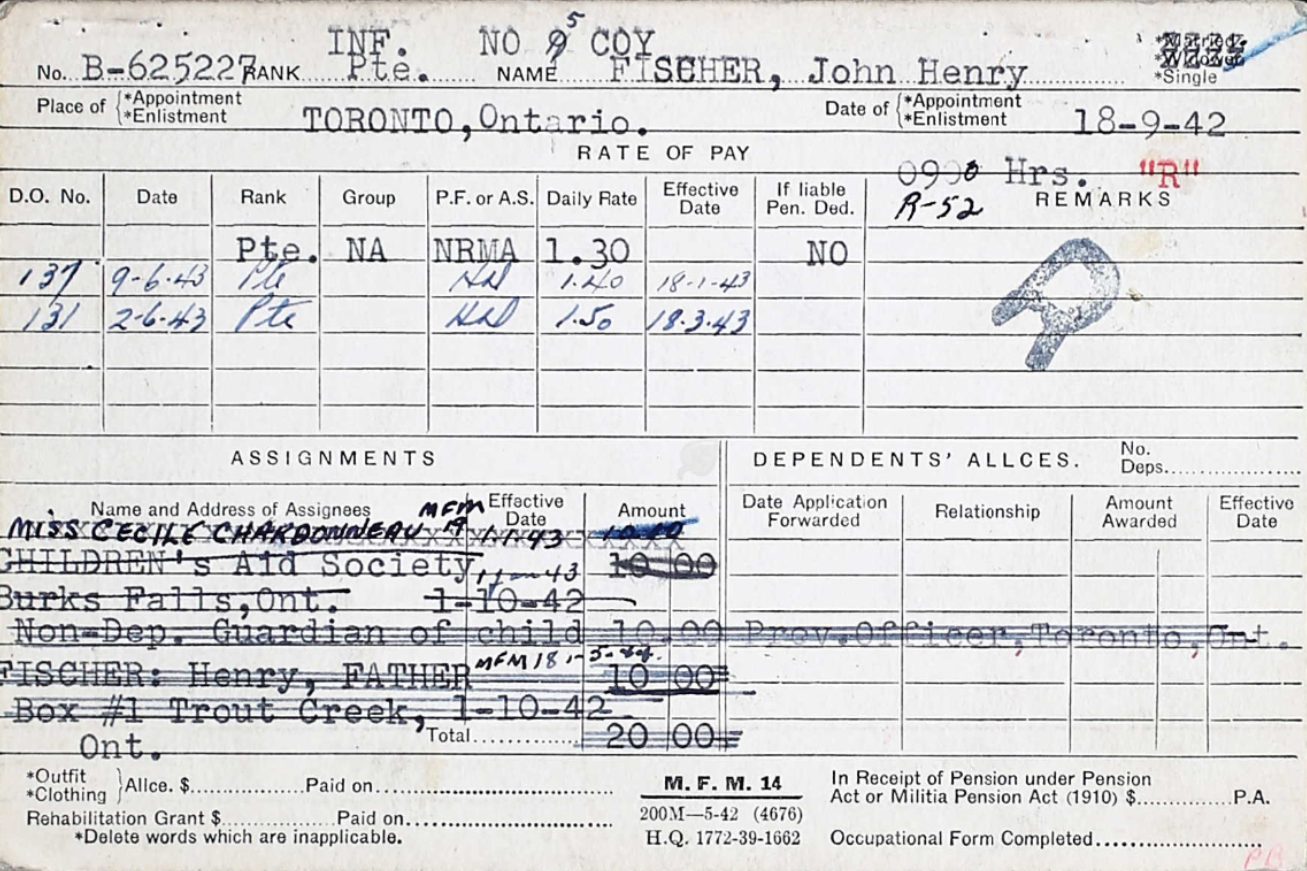 INF. NO 9 5 COY
No. B-625227 RANK Pte. NAME FISCHER, John Henry
*Married
*Widower
*Single
Place of { *Appointment *Enlistment TORONTO, Ontario. Date of { *Appointment *Enlistment 18-9-42
RATE OF PAY
0900 Hrs. "R"
D.O. No. Date Rank Group P.F. or A.S. Daily Rate Effective Date If liable Pen. Ded. R-52 REMARKS
Pte. NA NRMA 1.30 NO
137 9-6-43 Pte 1.40 18-1-43
131 2-6-43 Pte 1.50 18.3.43
ASSIGNMENTS DEPENDENTS' ALLCES. No. Deps.
Name and Address of Assignees MFM 19 Effective Date Amount Date Application Forwarded Relationship Amount Awarded Effective Date
MISS CECILE CHARDONNEAU
CHILDREN's Aid Society, 10 00
Burks Falls, Ont. 1-10-42
Non-Dep. Guardian of child 10.00 Prov. Officer, Toronto, Ont.
FISCHER: Henry, FATHER MFM 18 10 00
Box #1 Trout Creek, 1-10-42
Ont. Total 20 00
*Outfit *Clothing } Allce. $ Paid on
Rehabilitation Grant $ Paid on
*Delete words which are inapplicable.
M. F. M. 14
200M—5-42 (4676)
H.Q. 1772-39-1662
In Receipt of Pension under Pension
Act or Militia Pension Act (1910) $ P.A.
Occupational Form Completed
PB